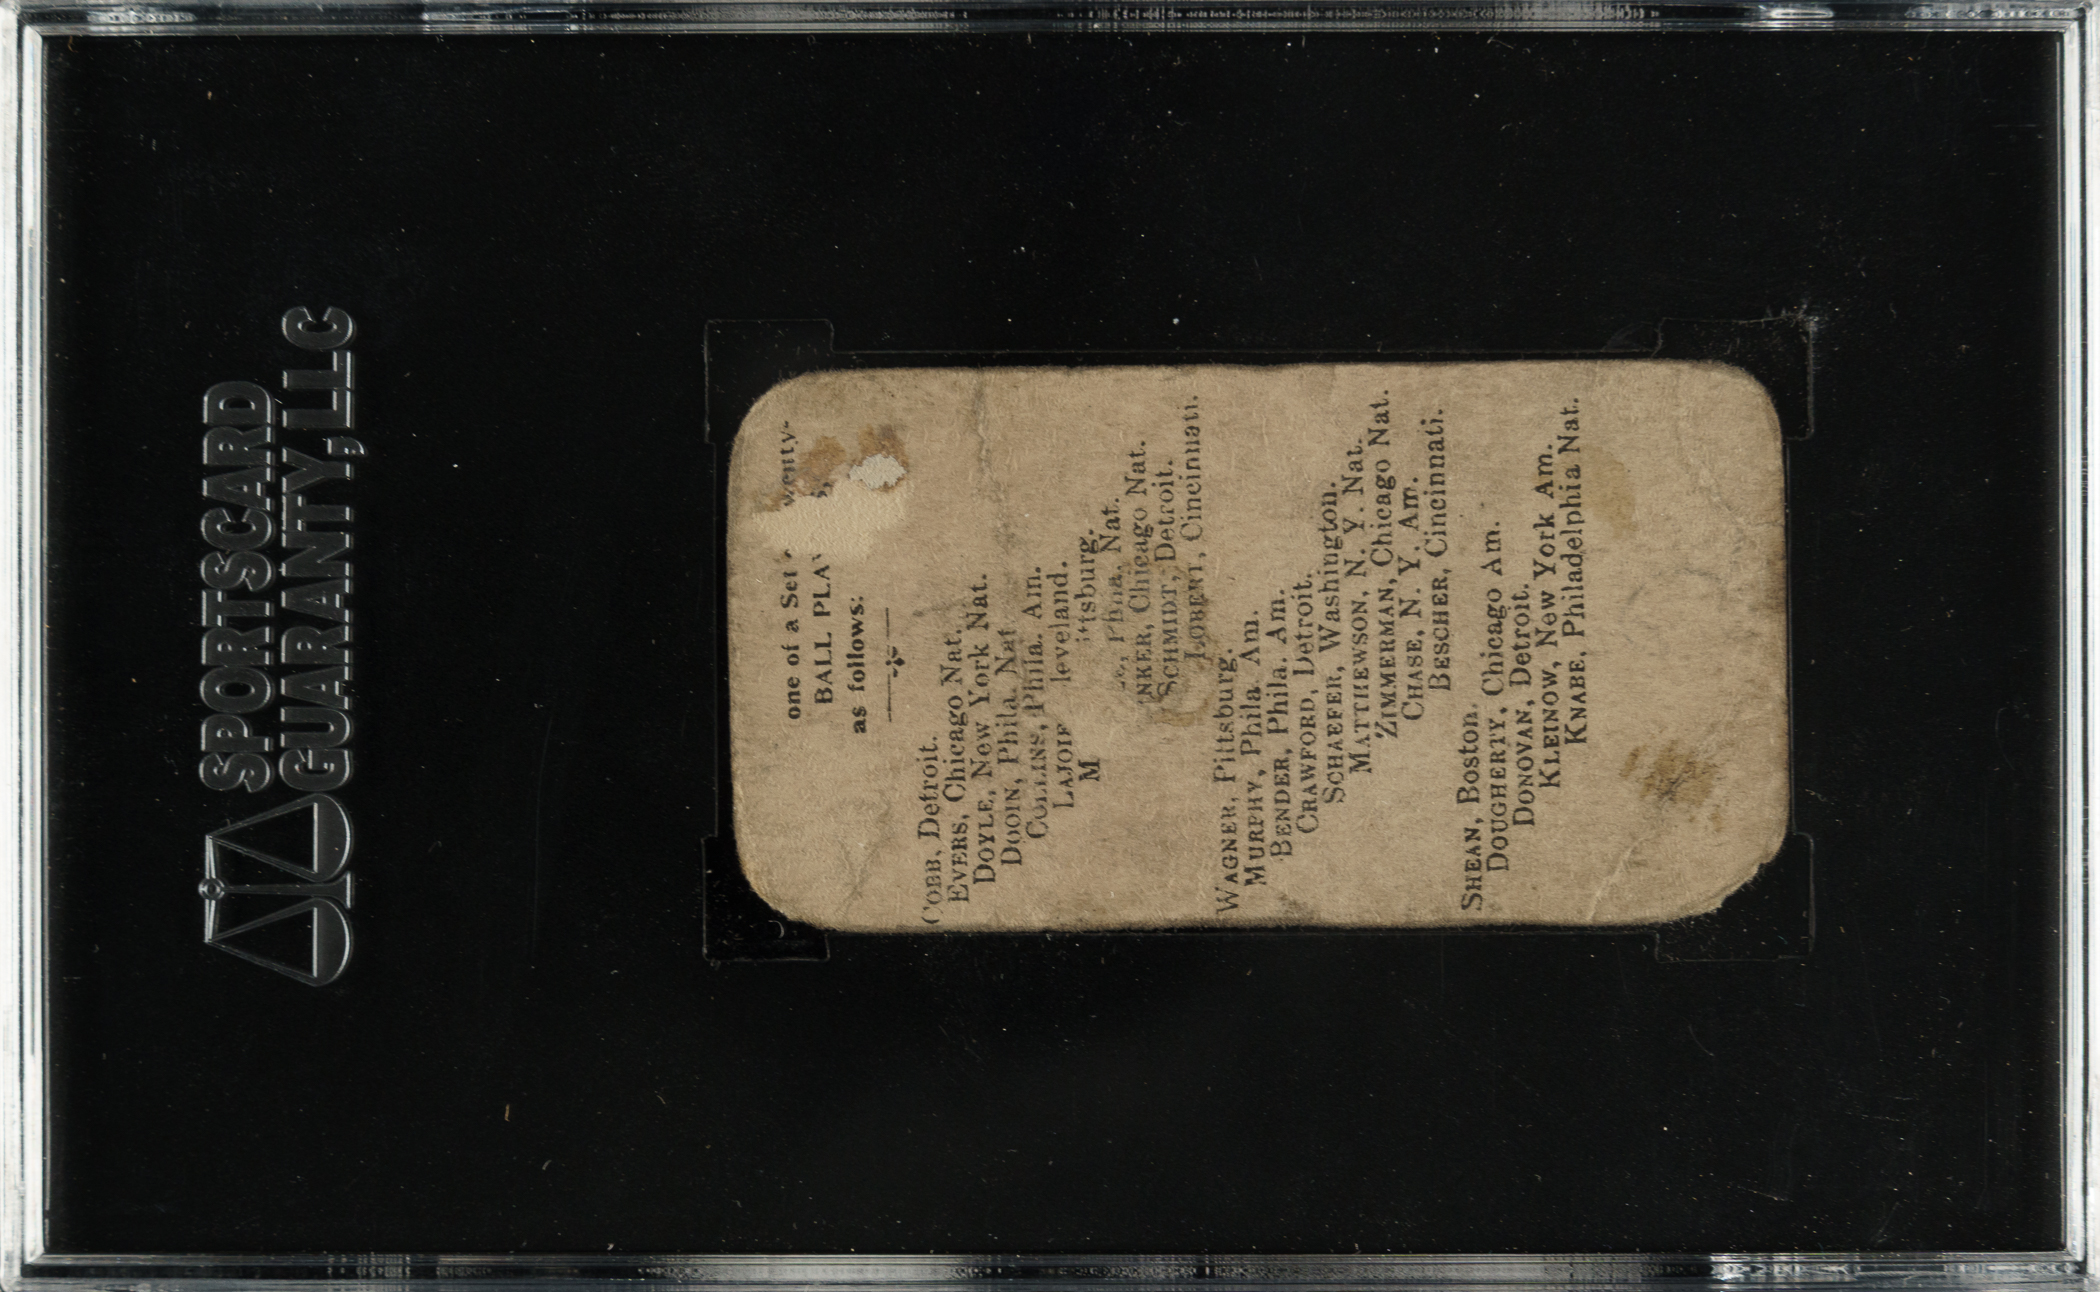 SPORTSCARD
GUARANTY, LLC
one of a Set
BALL PLA
as follows:
COBB, Detroit.
EVERS, Chicago Nat.
DOYLE, New York Nat.
DOOIN, Phila. Nat
COLLINS, Phila. Am.
LAJOIE leveland.
M ittsburg.
Phila, Nat.
NKER, Chicago Nat.
SCHMIDT, Detroit.
LOBERT, Cincinnati.
WAGNER, Pittsburg.
MURPHY, Phila. Am.
BENDER, Phila. Am.
CRAWFORD, Detroit.
SCHAEFER, Washington.
MATTHEWSON, N. Y. Nat.
ZIMMERMAN, Chicago Nat.
CHASE, N. Y. Am.
BESCHER, Cincinnati.
SHEAN, Boston.
DOUGHERTY, Chicago Am.
DONOVAN, Detroit.
KLEINOW, New York Am.
KNABE, Philadelphia Nat.